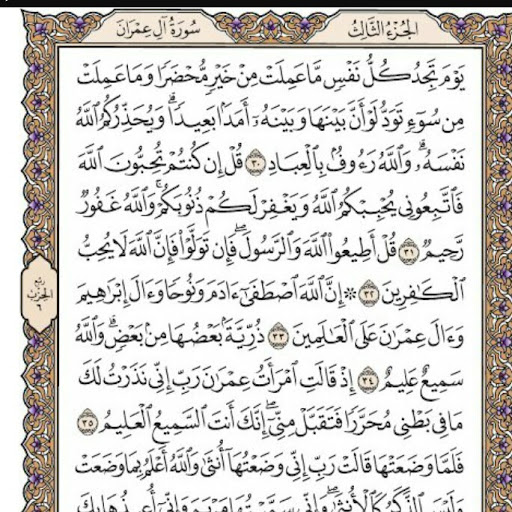 سُورَةُ آلِ عِمْرَانَ
الجُزْءُ الثَّالِثُ
يَوْمَ تَجِدُ كُلُّ نَفْسٍ مَّا عَمِلَتْ مِنْ خَيْرٍ مُّحْضَرًا وَمَا عَمِلَتْ
مِن سُوٓءٍ تَوَدُّ لَوْ أَنَّ بَيْنَهَا وَبَيْنَهُۥٓ أَمَدًۢا بَعِيدًاۗ وَيُحَذِّرُكُمُ ٱللَّهُ
نَفْسَهُۥۗ وَٱللَّهُ رَءُوفٌۢ بِٱلْعِبَادِ ٣٠ قُلْ إِن كُنتُمْ تُحِبُّونَ ٱللَّهَ
فَٱتَّبِعُونِى يُحْبِبْكُمُ ٱللَّهُ وَيَغْفِرْ لَكُمْ ذُنُوبَكُمْۗ وَٱللَّهُ غَفُورٌ
رَّحِيمٌ ٣١ قُلْ أَطِيعُوا۟ ٱللَّهَ وَٱلرَّسُولَۖ فَإِن تَوَلَّوْا۟ فَإِنَّ ٱللَّهَ لَا يُحِبُّ
ٱلْكَٰفِرِينَ ٣٢ ۞ إِنَّ ٱللَّهَ ٱصْطَفَىٰٓ ءَادَمَ وَنُوحًا وَءَالَ إِبْرَٰهِيمَ
وَءَالَ عِمْرَٰنَ عَلَى ٱلْعَٰلَمِينَ ٣٣ ذُرِّيَّةًۢ بَعْضُهَا مِنۢ بَعْضٍۗ وَٱللَّهُ
سَمِيعٌ عَلِيمٌ ٣٤ إِذْ قَالَتِ ٱمْرَأَتُ عِمْرَٰنَ رَبِّ إِنِّى نَذَرْتُ لَكَ
مَا فِى بَطْنِى مُحَرَّرًا فَتَقَبَّلْ مِنِّىٓۖ إِنَّكَ أَنتَ ٱلسَّمِيعُ ٱلْعَلِيمُ ٣٥
فَلَمَّا وَضَعَتْهَا قَالَتْ رَبِّ إِنِّى وَضَعْتُهَآ أُنثَىٰ وَٱللَّهُ أَعْلَمُ بِمَا وَضَعَتْ
وَلَيْسَ ٱلذَّكَرُ كَٱلْأُنثَىٰۖ وَإِنِّى سَمَّيْتُهَا مَرْيَمَ وَإِنِّىٓ أُعِيذُهَا بِكَ
رُبْعُ
الحِزْبِ
٦